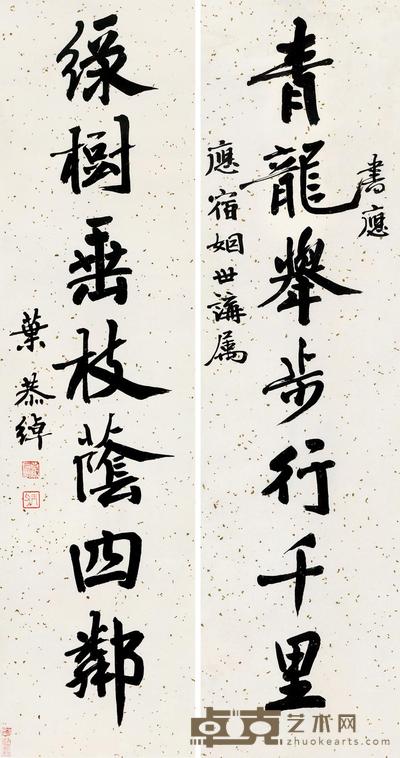 青龍舉步行千里
書應
應宿姻世講属
綠樹垂枝蔭四鄰
葉恭綽
点克
艺术网
www.zhuokearts.com